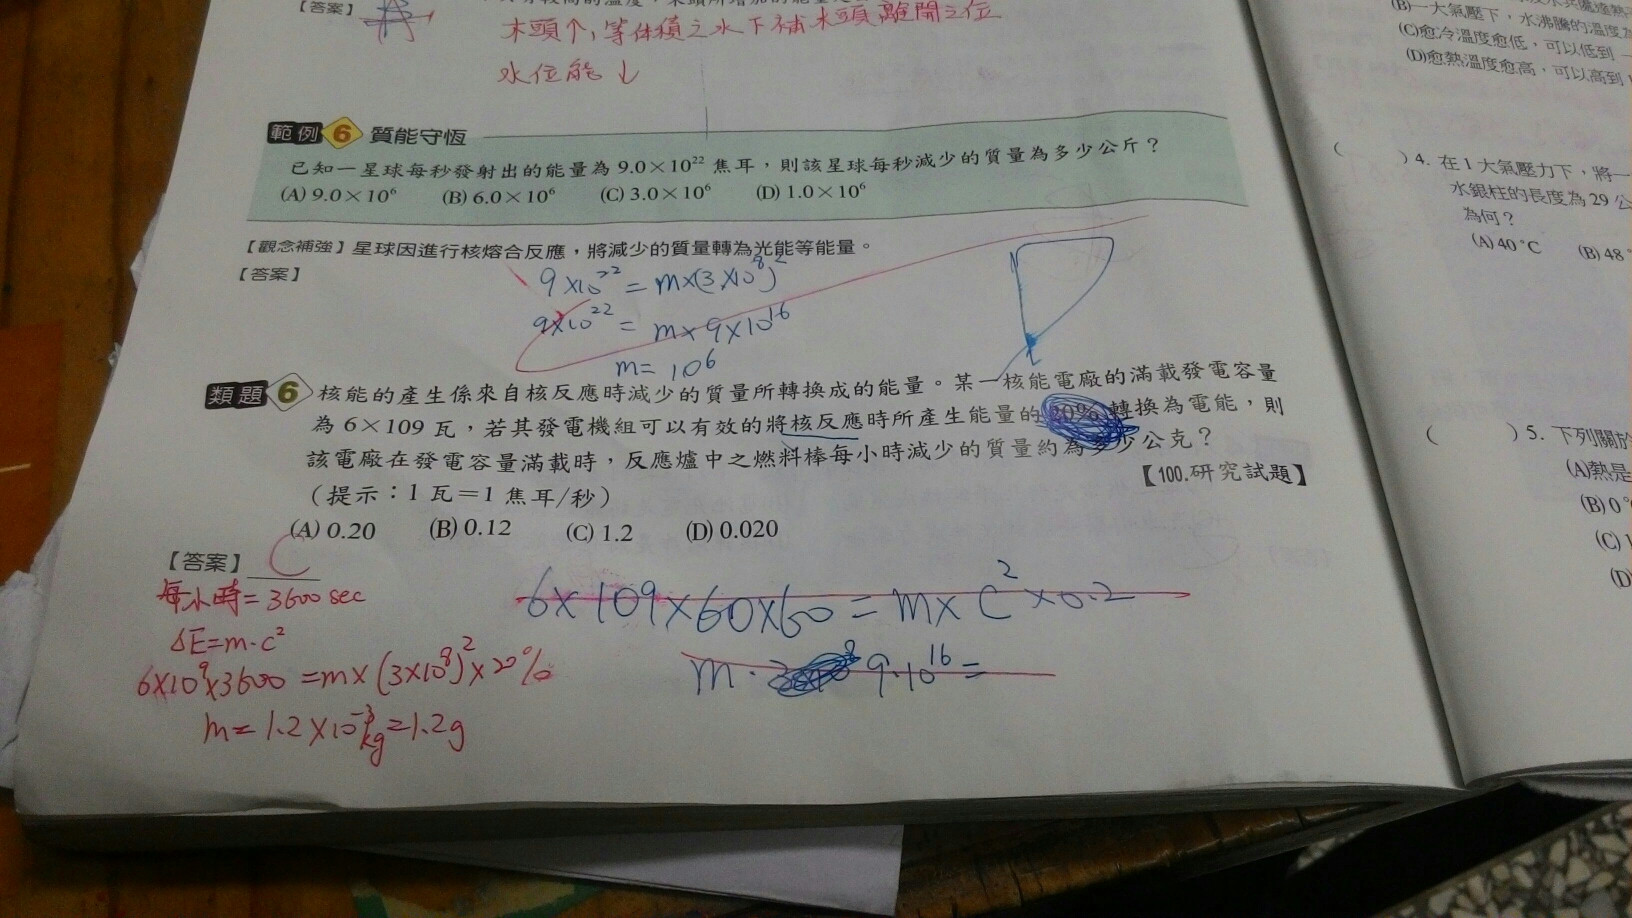 【答案】
木頭個,等体積之水下補木頭離開之位
水位能↓
範例 6 質能守恆
已知一星球每秒發射出的能量為 9.0×10²² 焦耳,則該星球每秒減少的質量為多少公斤?
(A) 9.0×10⁶ (B) 6.0×10⁶ (C) 3.0×10⁶ (D) 1.0×10⁶
【觀念補強】星球因進行核熔合反應,將減少的質量轉為光能等能量。
【答案】
9×10²²=m×(3×10⁸)²
9×10²²=m×9×10¹⁶
m=10⁶
類題 6 核能的產生係來自核反應時減少的質量所轉換成的能量。某一核能電廠的滿載發電容量
為 6×109 瓦,若其發電機組可以有效的將核反應時所產生能量的 20% 轉換為電能,則
該電廠在發電容量滿載時,反應爐中之燃料棒每小時減少的質量約為多少公克?
(提示:1 瓦=1 焦耳/秒)
【100.研究試題】
(A) 0.20 (B) 0.12 (C) 1.2 (D) 0.020
【答案】 C
每小時=3600 sec
ΔE=m·c²
6×10⁹×3600=m×(3×10⁸)²×20%
m=1.2×10⁻³kg=1.2g
6×109×60×60=m×C²×0.2
m· 9·10¹⁶=
(B)一大氣壓下,水沸騰的溫度為
(C)愈冷溫度愈低,可以低到一
(D)愈熱溫度愈高,可以高到
( )4. 在1大氣壓力下,將一
水銀柱的長度為 29 公
為何?
(A) 40℃ (B) 48
( )5. 下列關於
(A)熱是
(B) 0
(C)
(D)